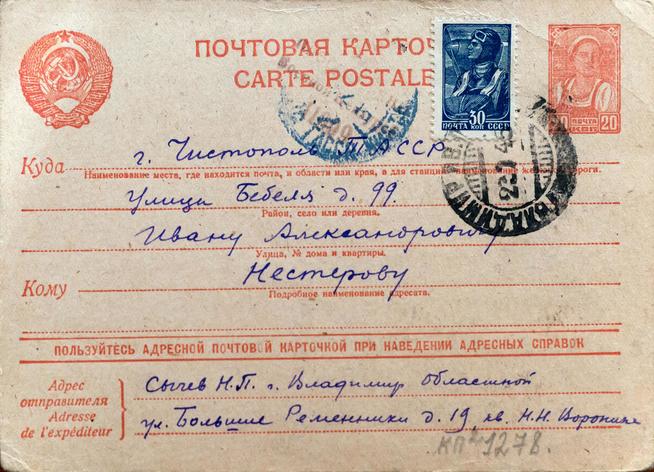 ПОЧТОВАЯ
CARTE POSTALE
30
ПОЧТА КОП СССР
20
ПОЧТА
20
Куда
г. Чистополь ТАССР
Наименование места, где находится почта, и области или края, а для станции наименование дороги.
Улица Бебеля д. 99.
Район, село или деревня.
Ивану Александровичу
Улица, № дома и квартиры.
Кому
Нестерову
Подробное наименование адресата.
ПОЛЬЗУЙТЕСЬ АДРЕСНОЙ ПОЧТОВОЙ КАРТОЧКОЙ ПРИ НАВЕДЕНИИ АДРЕСНЫХ СПРАВОК
Адрес
отправителя
Adresse
de l'expéditeur
Сычев Н.П. г. Владимир областной
ул. Большие Ременники д. 19, кв. Н.Н. Воронина
1278.